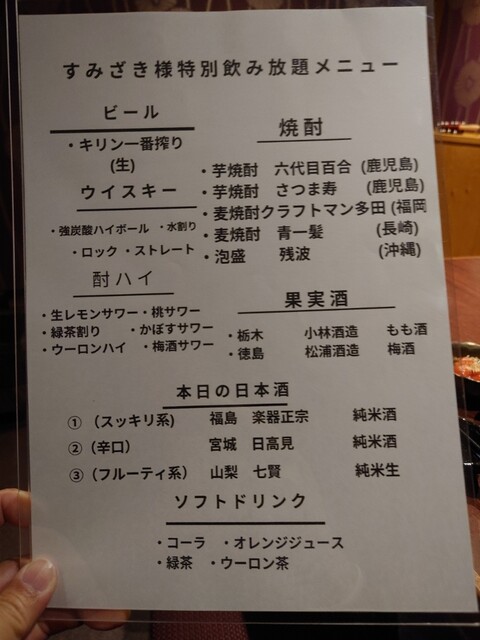 すみざき様特別飲み放題メニュー
ビール
・キリン一番搾り
(生)
ウイスキー
・強炭酸ハイボール ・水割り
・ロック ・ストレート
酎ハイ
・生レモンサワー ・桃サワー
・緑茶割り ・かぼすサワー
・ウーロンハイ ・梅酒サワー
焼酎
・芋焼酎 六代目百合 (鹿児島)
・芋焼酎 さつま寿 (鹿児島)
・麦焼酎クラフトマン多田 (福岡
・麦焼酎 青一髪 (長崎)
・泡盛 残波 (沖縄)
果実酒
・栃木 小林酒造 もも酒
・徳島 松浦酒造 梅酒
本日の日本酒
① （スッキリ系) 福島 楽器正宗 純米酒
②（辛口） 宮城 日高見 純米酒
③（フルーティ系） 山梨 七賢 純米生
ソフトドリンク
・コーラ ・オレンジジュース
・緑茶 ・ウーロン茶